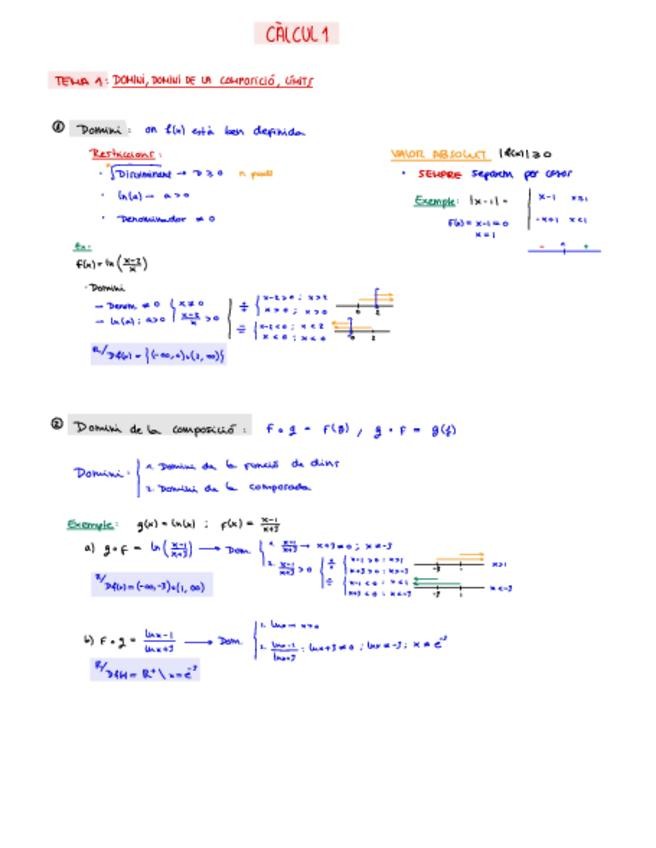 CÀLCUL 1
TEMA 1: DOMINI, DOMINI DE LA COMPOSICIÓ, LÍMITS
① Domini: on f(x) està ben definida
Restriccions:
· √Discriminant → D ≥ 0 n parell
· ln(a) → a > 0
· Denominador ≠ 0
VALOR ABSOLUT |f(x)| ≥ 0
· SEMPRE separem per casos
Exemple: |x-1| =
x-1 x≥1
-x+1 x<1
f(x) = x-1 = 0
x = 1
- 1 +
Ex:
f(x) = ln (x-2/x)
· Domini
→ Denom. ≠ 0 { x ≠ 0
→ ln(a): a>0 { x-2/x > 0
+/+ { x-2>0 ; x>2
x>0 ; x>0
0 2
-/- { x-2<0 ; x<2
x<0 ; x<0
0 2
R/ Df(x) = {(-∞,0)∪(2,∞)}
② Domini de la composició: F∘g = F(g) , g∘F = g(f)
Domini:
1. Domini de la funció de dins
2. Domini de la composada
Exemple: g(x) = ln(x) ; f(x) = x-1/x+3
a) g∘F = ln (x-1/x+3) → Dom.
1. x-1/x+3 → x+3≠0 ; x≠-3
2. x-1/x+3 > 0
+/+ { x-1>0 ; x>1
x+3>0 ; x>-3
-3 1 x>1
-/- { x-1<0 ; x<1
x+3<0 ; x<-3
-3 1 x<-3
R/ Df(x) = (-∞,-3)∪(1,∞)
b) F∘g = lnx-1/lnx+3 → Dom.
1. lnx → x>0
2. lnx-1/lnx+3 : lnx+3≠0 ; lnx≠-3 ; x≠e⁻³
R/ Df(x) = R⁺ \ x=e⁻³